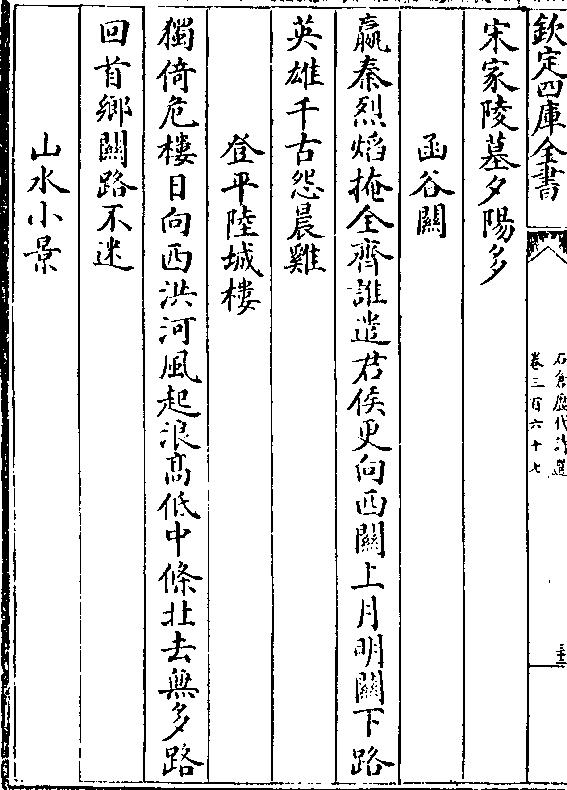 欽定四庫全書
石倉歷代詩選
卷三百六十七
宋家陵墓夕陽多
函谷關
嬴秦烈焰掩全齊誰遣君侯更向西關上月明關下路
英雄千古怨晨雞
登平陸城樓
獨倚危樓日向西洪河風起浪髙低中條北去無多路
回首鄉關路不迷
山水小景